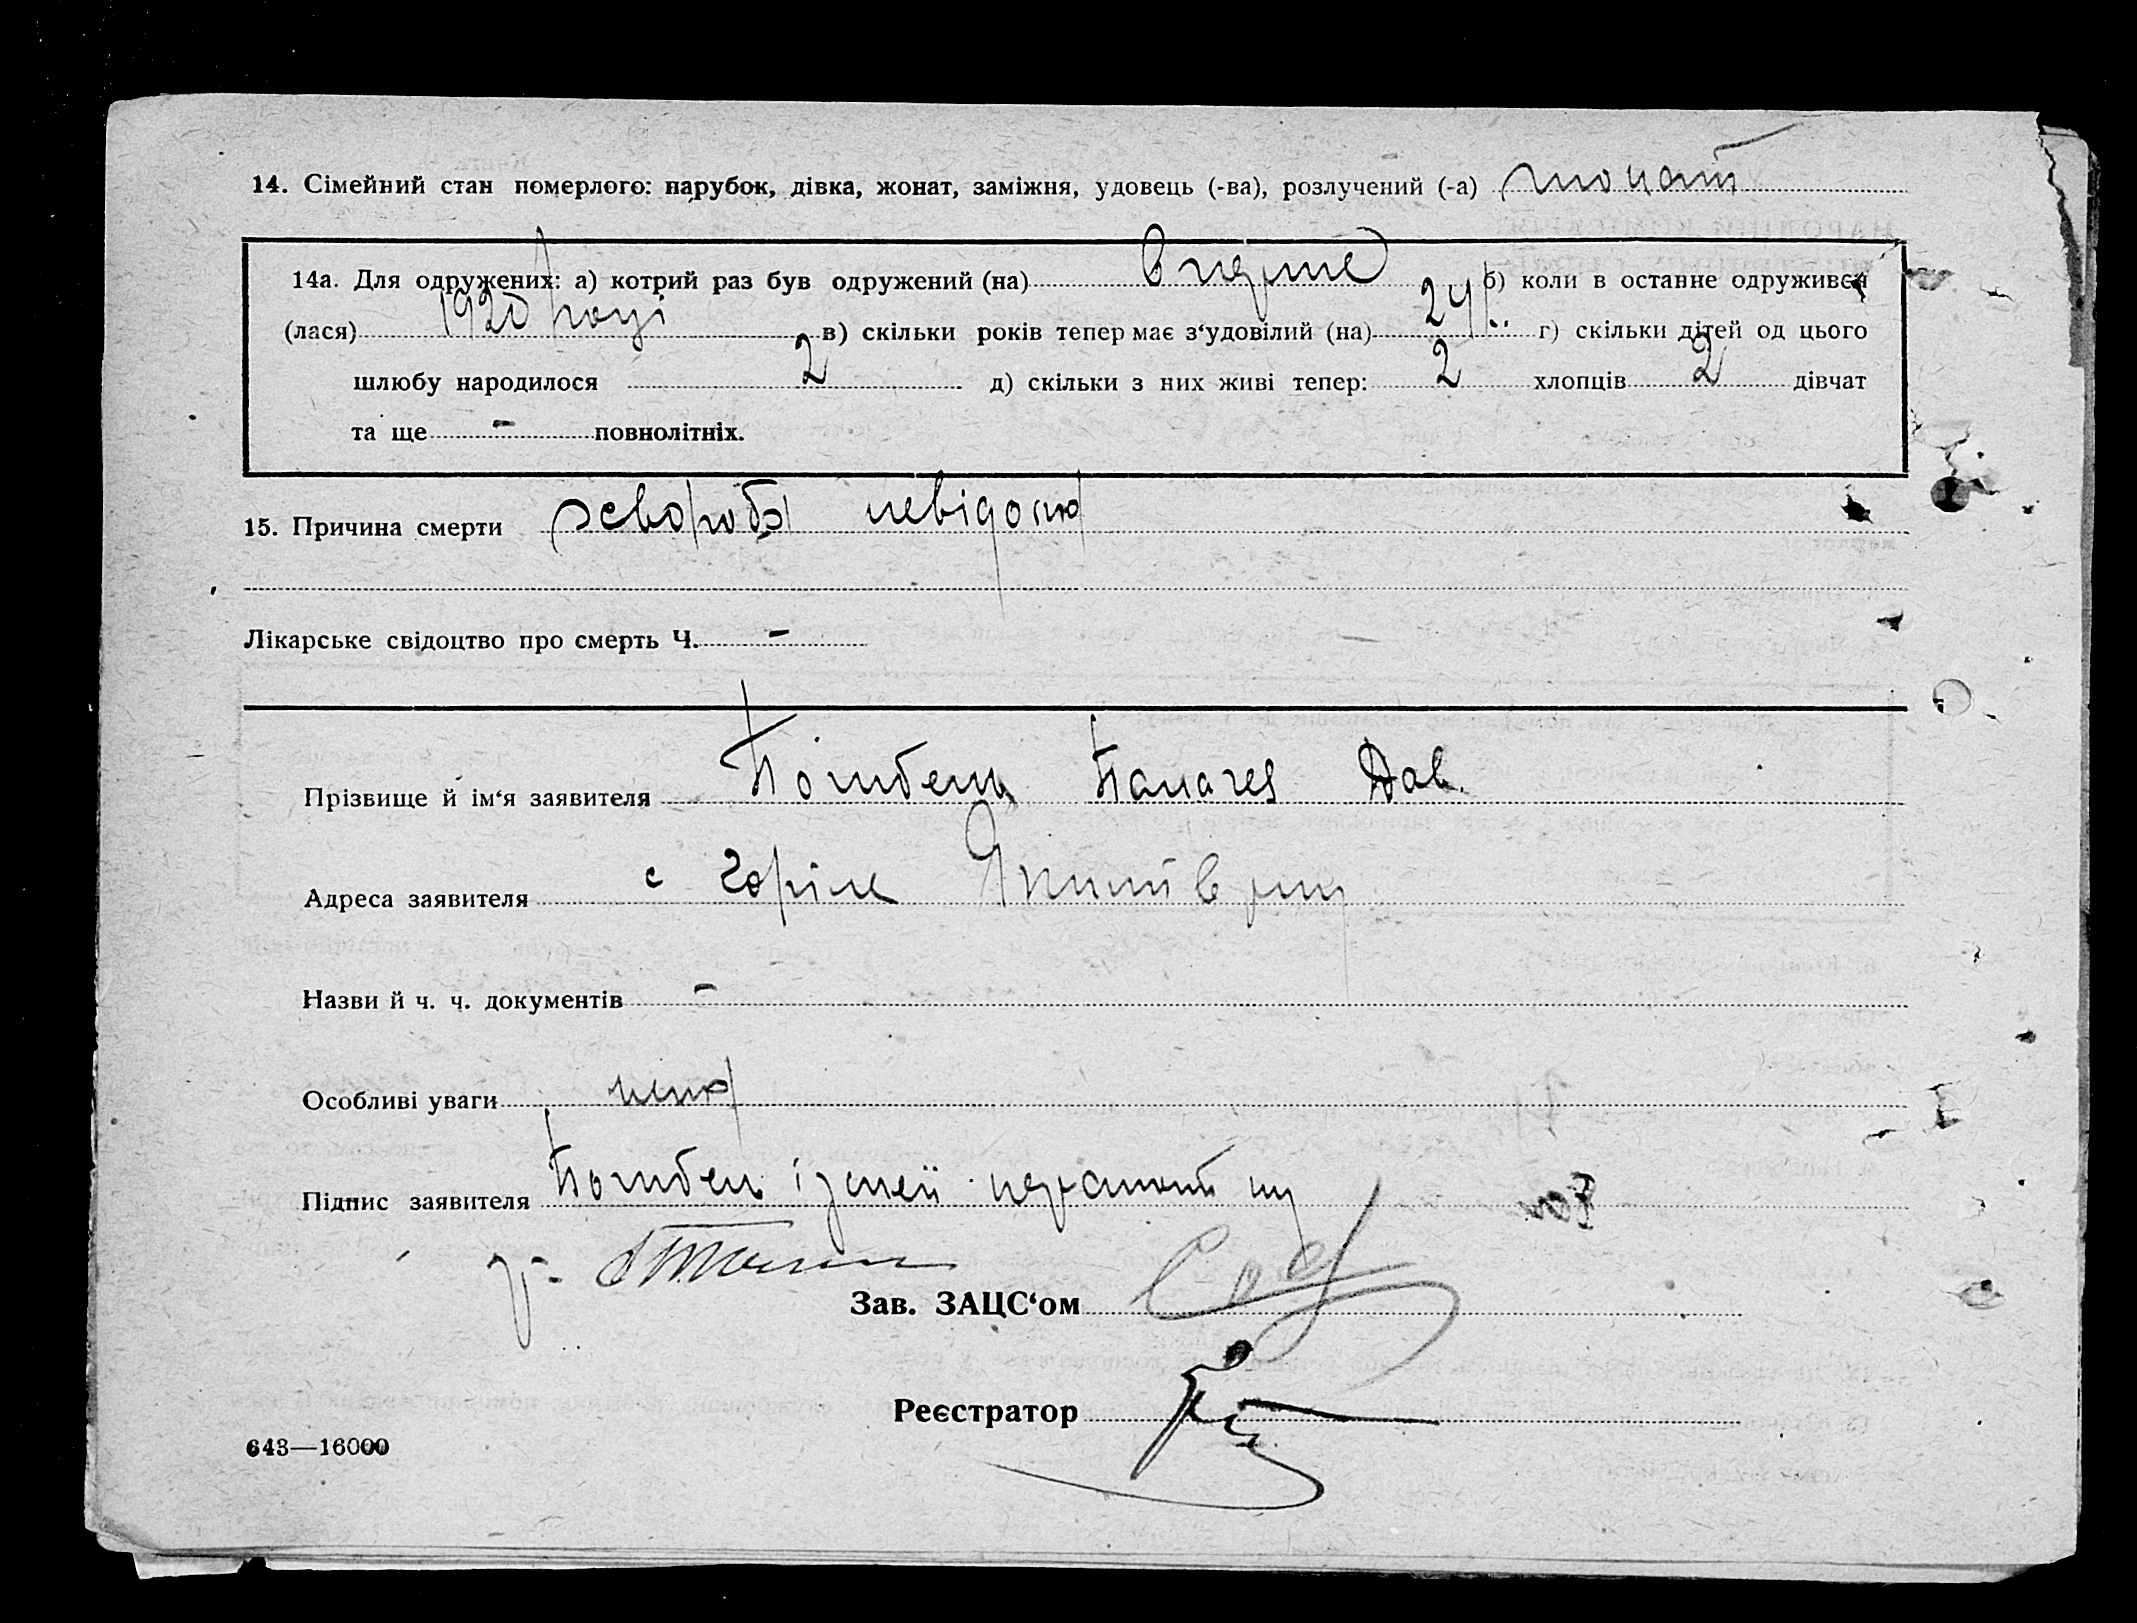 14. Сімейний стан померлого: парубок, дівка, жонат, заміжня, удовець (-ва), розлучений (-а) жонат
14а. Для одружених: а) котрий раз був одружений (на) вперше б) коли в останне одружився
(лася) 1920 році в) скільки років тепер має з‘удовілий (на) 24 р. г) скільки дітей од цього
шлюбу народилося 2 д) скільки з них живі тепер: 2 хлопців 2 дівчат
та ще - повнолітніх.
15. Причина смерти хвороба невідома
Лікарське свідоцтво про смерть Ч. -
Прізвище й ім‘я заявителя Дав.
Адреса заявителя с
Назви й ч. ч. документів -
Особливі уваги нема
Підпис заявителя
Зав. ЗАЦС‘ом
Реєстратор
643—16000